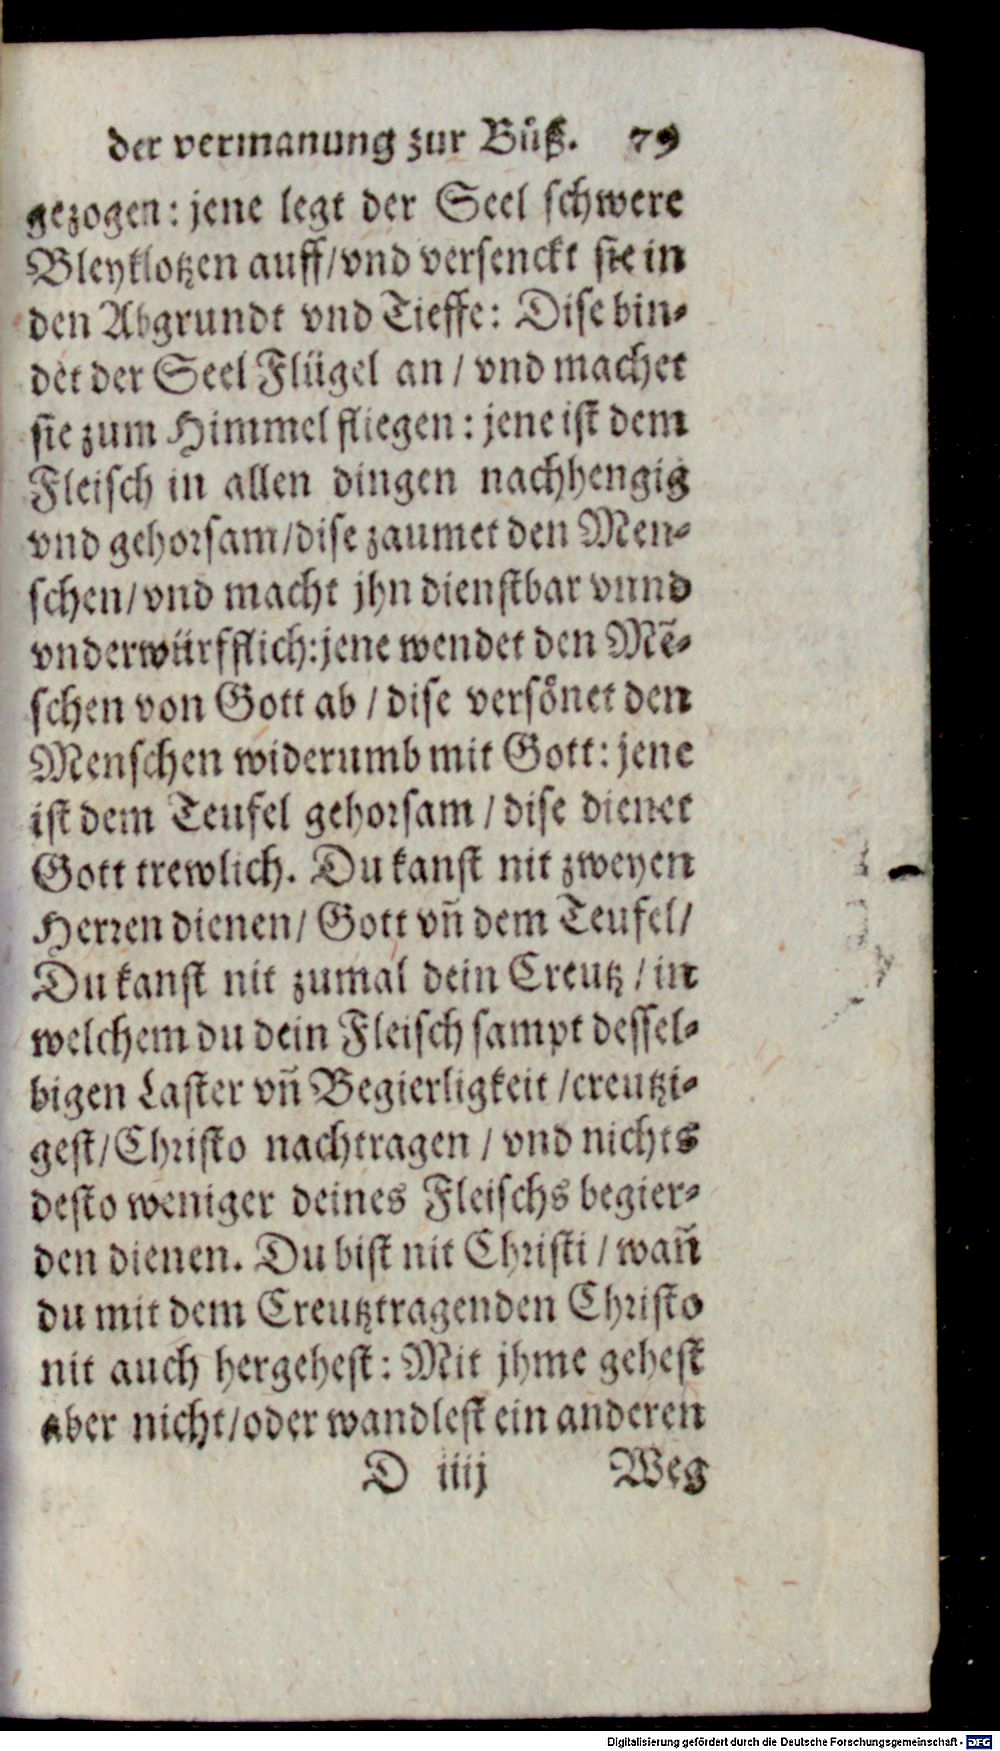 der vermanung zur Bůß. 79
gezogen: jene legt der Seel schwere
Bleyklotzen auff/vnd versenckt sie in
den Abgrundt vnd Tieffe: Dise bin⸗
det der Seel Flügel an / vnd machet
sie zum Himmel fliegen: jene ist dem
Fleisch in allen dingen nachhengig
vnd gehorsam/dise zaumet den Men⸗
schen/vnd macht jhn dienstbar vnnd
vnderwürfflich:jene wendet den Mẽ⸗
schen von Gott ab / dise versönet den
Menschen widerumb mit Gott: jene
ist dem Teufel gehorsam / dise dienet
Gott trewlich. Du kanst nit zweyen
Herren dienen/ Gott vñ dem Teufel/
Du kanst nit zumal dein Creutz / in
welchem du dein Fleisch sampt dessel⸗
bigen Laster vñ Begierligkeit /creutzi⸗
gest/Christo nachtragen / vnd nichts
desto weniger deines Fleischs begier⸗
den dienen. Du bist nit Christi / wañ
du mit dem Creutztragenden Christo
nit auch hergehest: Mit jhme gehest
aber nicht/oder wandlest ein anderen
D iiij Weg
Digitalisierung gefördert durch die Deutsche Forschungsgemeinschaft - DFG